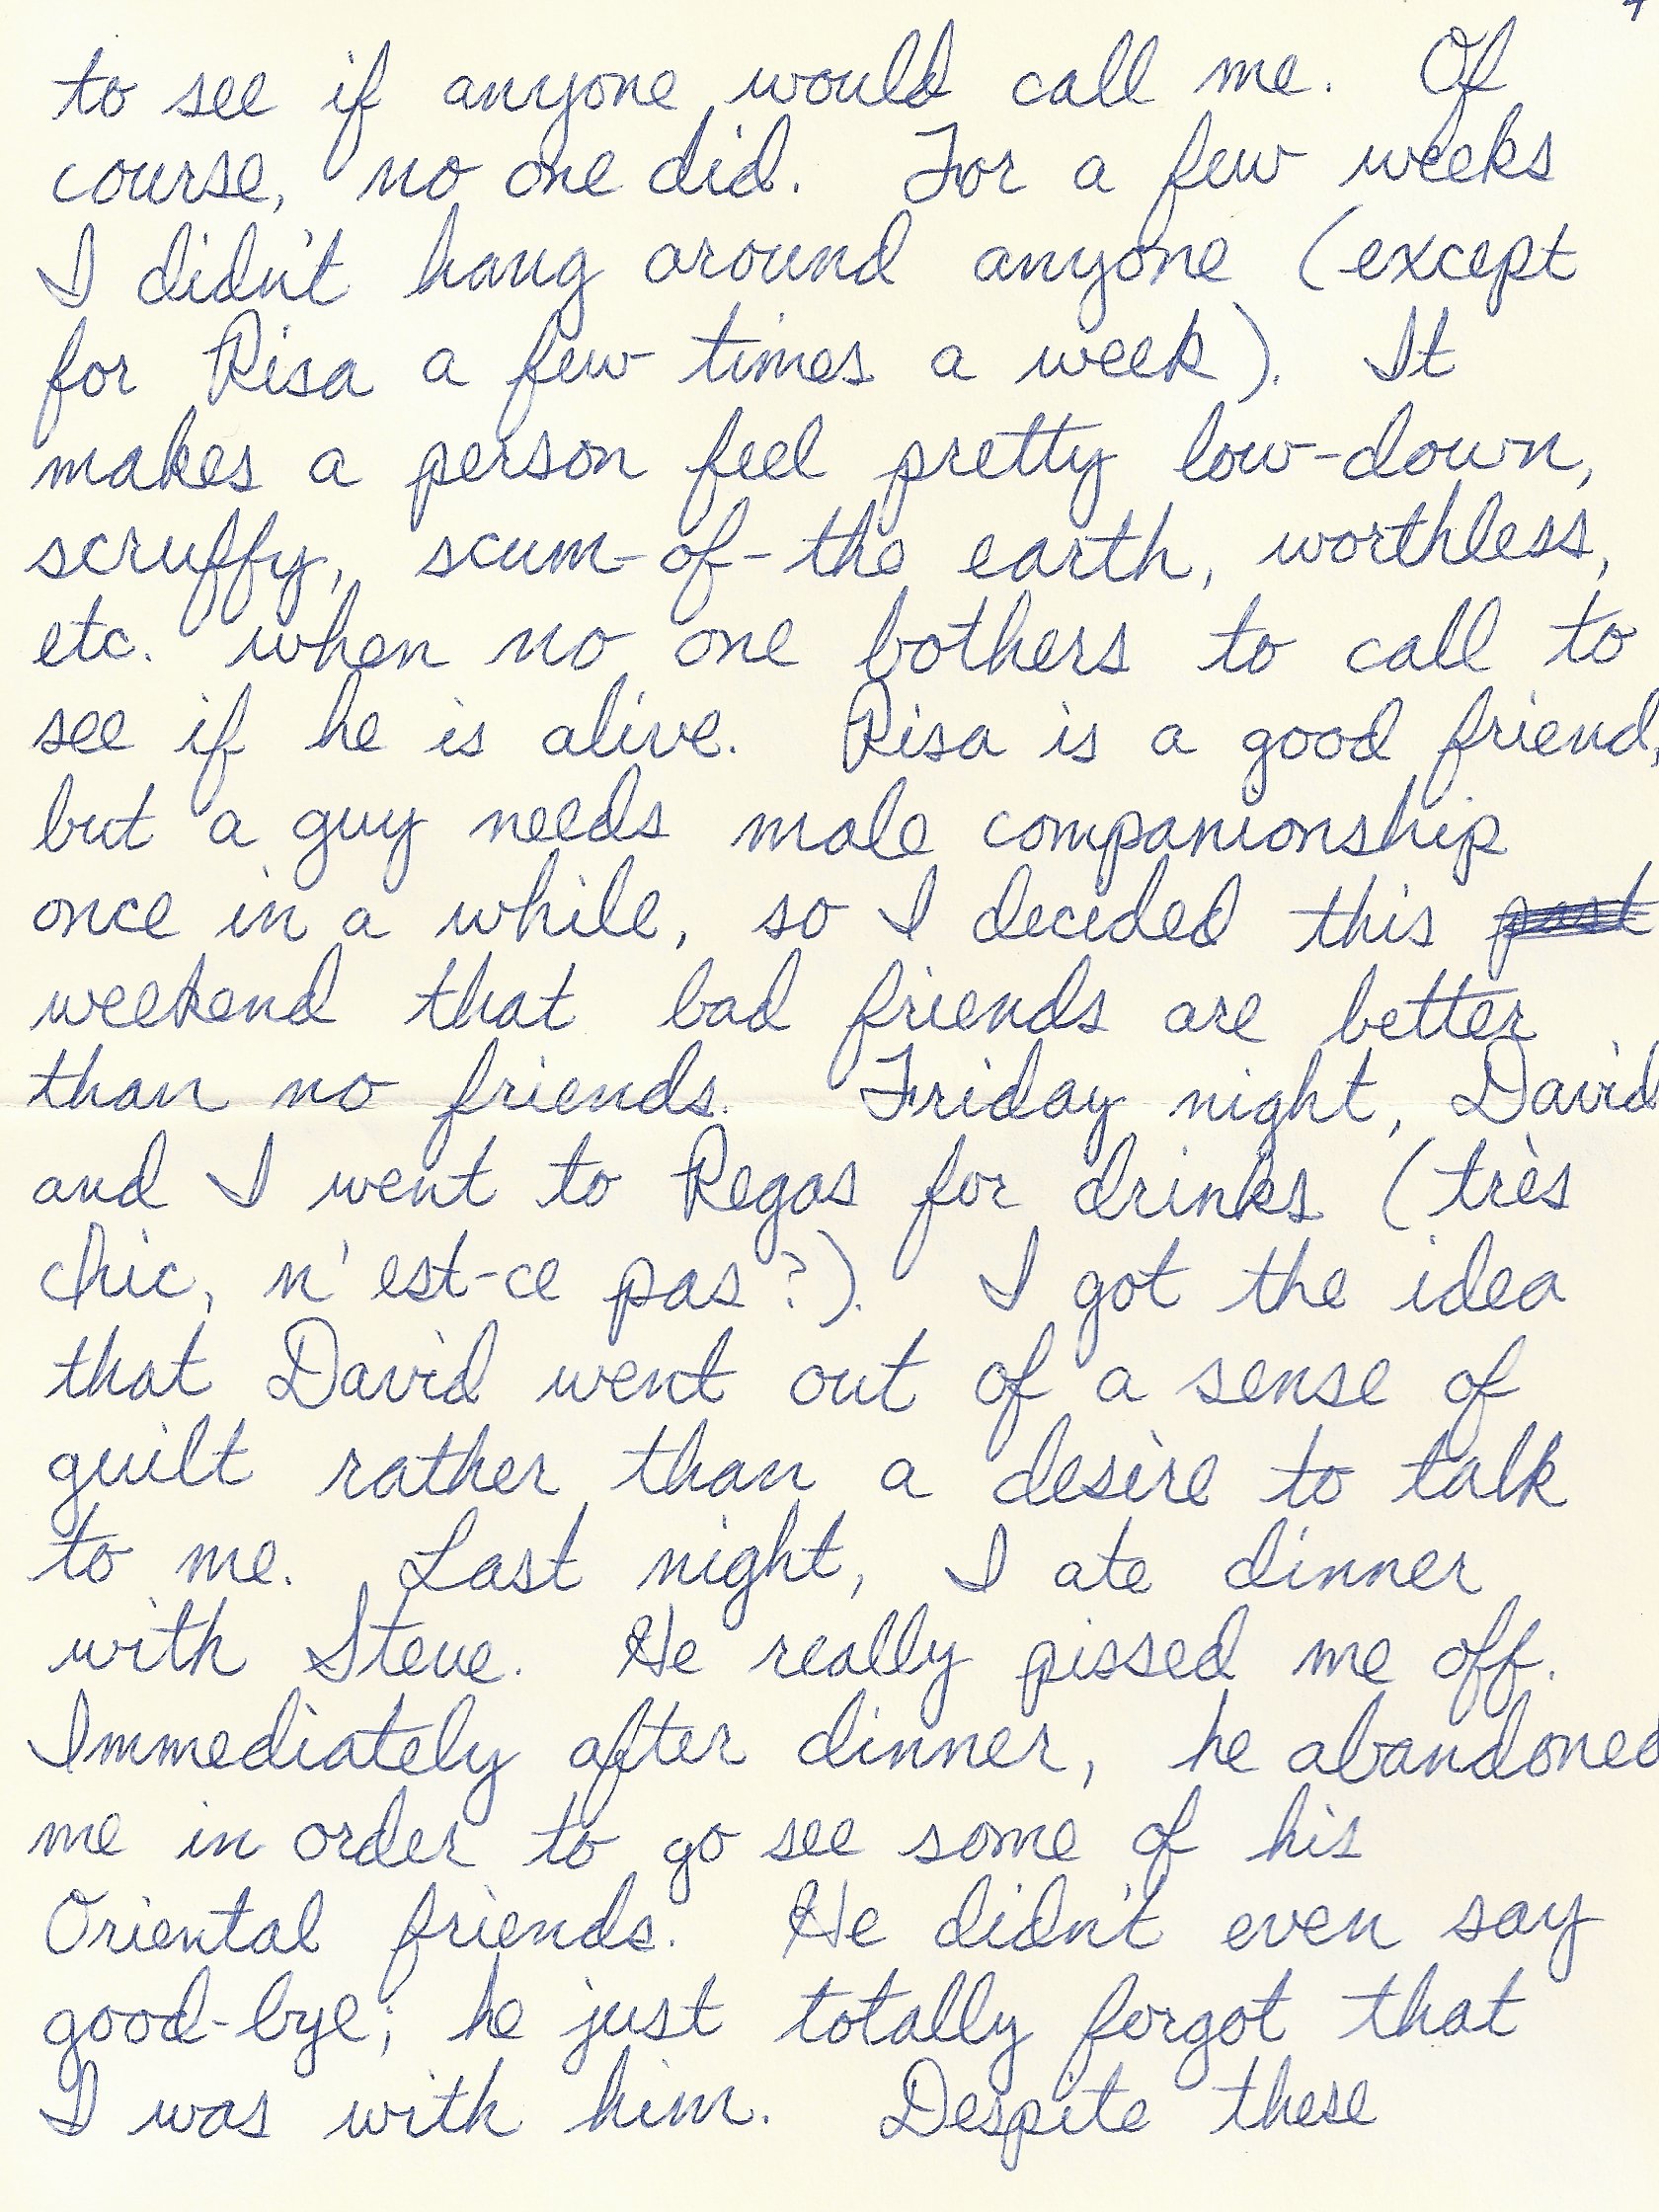 to see if anyone would call me. Of
course, no one did. For a few weeks
I didn't hang around anyone (except
for Risa a few times a week). It
makes a person feel pretty low-down,
scruffy, scum-of-the earth, worthless,
etc. when no one bothers to call to
see if he is alive. Risa is a good friend,
but a guy needs male companionship
once in a while, so I decided this past
weekend that bad friends are better
than no friends. Friday night, David
and I went to Regas for drinks (très
chic, n'est-ce pas?). I got the idea
that David went out of a sense of
guilt rather than a desire to talk
to me. Last night, I ate dinner
with Steve. He really pissed me off.
Immediately after dinner, he abandoned
me in order to go see some of his
Oriental friends. He didn't even say
good-bye; he just totally forgot that
I was with him. Despite these